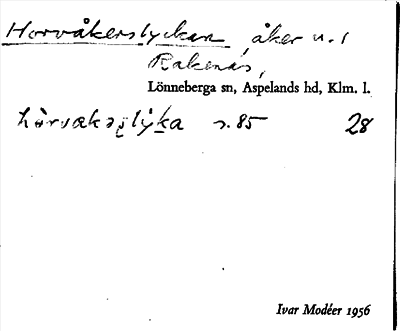 Horvåkerslyckan, åker n. 1
Rakenäs,
Lönneberga sn, Aspelands hd, Klm. l.
s. 85 28
Ivar Modéer 1956